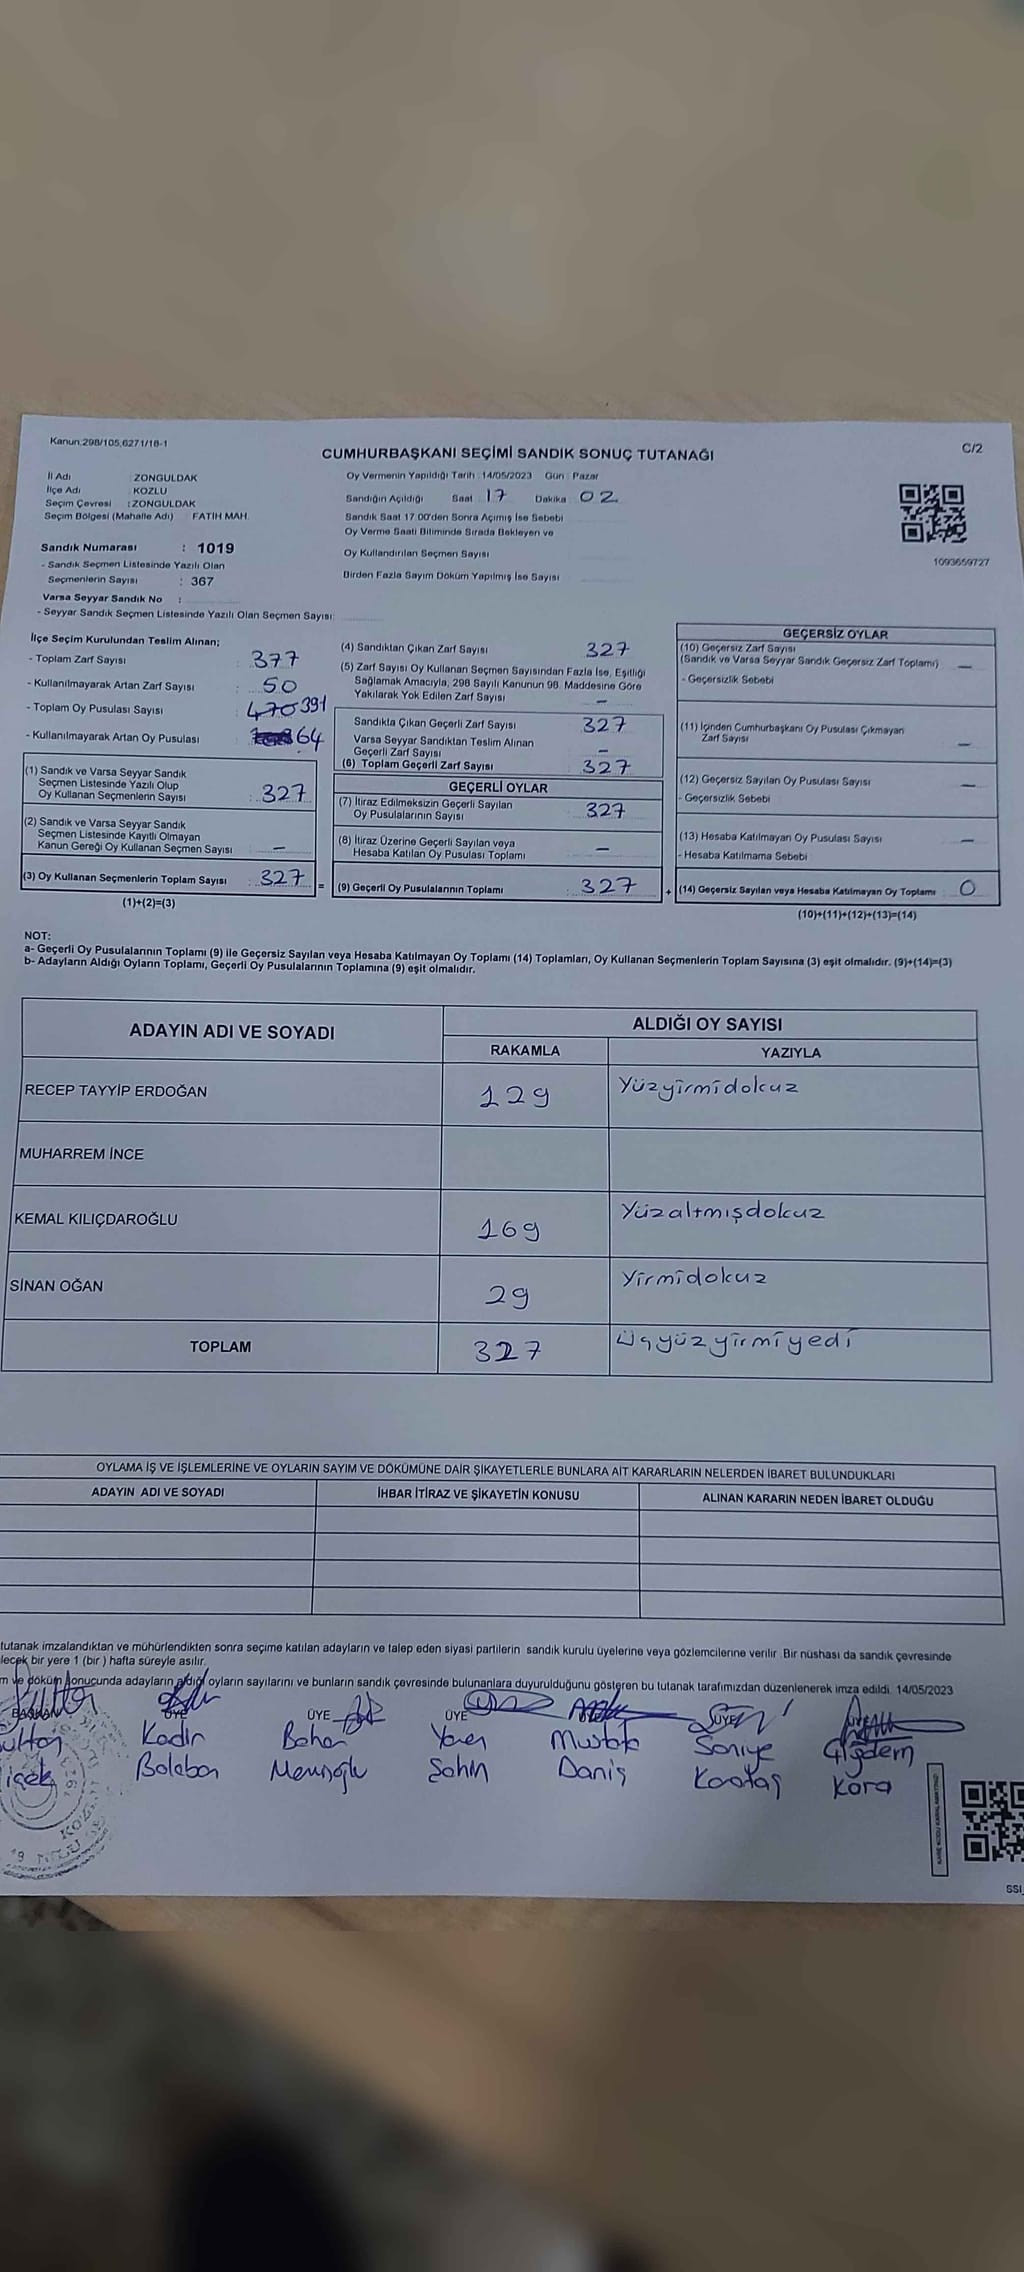 Kanun:298/105,6271/18-1
C/2
CUMHURBAŞKANI SEÇİMİ SANDIK SONUÇ TUTANAĞI
İl Adı : ZONGULDAK
İlçe Adı : KOZLU
Seçim Çevresi : ZONGULDAK
Seçim Bölgesi (Mahalle Adı) FATİH MAH.
Sandık Numarası : 1019
- Sandık Seçmen Listesinde Yazılı Olan
Seçmenlerin Sayısı : 367
Varsa Seyyar Sandık No :
- Seyyar Sandık Seçmen Listesinde Yazılı Olan Seçmen Sayısı:
Oy Vermenin Yapıldığı Tarih : 14/05/2023 Gün : Pazar
Sandığın Açıldığı Saat 17 Dakika 02
Sandık Saat 17:00'den Sonra Açımış İse Sebebi
Oy Verme Saati Bitiminde Sırada Bekleyen ve
Oy Kullandırılan Seçmen Sayısı
Birden Fazla Sayım Döküm Yapılmış İse Sayısı
1093659727
İlçe Seçim Kurulundan Teslim Alınan;
- Toplam Zarf Sayısı : 377
- Kullanılmayarak Artan Zarf Sayısı : 50
- Toplam Oy Pusulası Sayısı : 470 391
- Kullanılmayarak Artan Oy Pusulası : 64
(1) Sandık ve Varsa Seyyar Sandık
Seçmen Listesinde Yazılı Olup
Oy Kullanan Seçmenlerin Sayısı : 327
(2) Sandık ve Varsa Seyyar Sandık
Seçmen Listesinde Kayıtlı Olmayan
Kanun Gereği Oy Kullanan Seçmen Sayısı : -
(3) Oy Kullanan Seçmenlerin Toplam Sayısı : 327 =
(1)+(2)=(3)
(4) Sandıktan Çıkan Zarf Sayısı 327
(5) Zarf Sayısı Oy Kullanan Seçmen Sayısından Fazla İse, Eşitliği
Sağlamak Amacıyla, 298 Sayılı Kanunun 98. Maddesine Göre
Yakılarak Yok Edilen Zarf Sayısı -
Sandıkta Çıkan Geçerli Zarf Sayısı 327
Varsa Seyyar Sandıktan Teslim Alınan
Geçerli Zarf Sayısı -
(6) Toplam Geçerli Zarf Sayısı 327
GEÇERLİ OYLAR
(7) İtiraz Edilmeksizin Geçerli Sayılan
Oy Pusulalarının Sayısı 327
(8) İtiraz Üzerine Geçerli Sayılan veya
Hesaba Katılan Oy Pusulası Toplamı -
(9) Geçerli Oy Pusulalarının Toplamı : 327 +
GEÇERSİZ OYLAR
(10) Geçersiz Zarf Sayısı
(Sandık ve Varsa Seyyar Sandık Geçersiz Zarf Toplamı) -
- Geçersizlik Sebebi
(11) İçinden Cumhurbaşkanı Oy Pusulası Çıkmayan
Zarf Sayısı -
(12) Geçersiz Sayılan Oy Pusulası Sayısı -
- Geçersizlik Sebebi
(13) Hesaba Katılmayan Oy Pusulası Sayısı -
- Hesaba Katılmama Sebebi
(14) Geçersiz Sayılan veya Hesaba Katılmayan Oy Toplamı 0
(10)+(11)+(12)+(13)=(14)
NOT:
a- Geçerli Oy Pusulalarının Toplamı (9) ile Geçersiz Sayılan veya Hesaba Katılmayan Oy Toplamı (14) Toplamları, Oy Kullanan Seçmenlerin Toplam Sayısına (3) eşit olmalıdır. (9)+(14)=(3)
b- Adayların Aldığı Oyların Toplamı, Geçerli Oy Pusulalarının Toplamına (9) eşit olmalıdır.
ADAYIN ADI VE SOYADI
ALDIĞI OY SAYISI
RAKAMLA YAZIYLA
RECEP TAYYİP ERDOĞAN 129 Yüzyirmidokuz
MUHARREM İNCE
KEMAL KILIÇDAROĞLU 169 Yüzaltmışdokuz
SİNAN OĞAN 29 Yirmidokuz
TOPLAM 327 Üçyüzyirmiyedi
OYLAMA İŞ VE İŞLEMLERİNE VE OYLARIN SAYIM VE DÖKÜMÜNE DAİR ŞİKAYETLERLE BUNLARA AİT KARARLARIN NELERDEN İBARET BULUNDUKLARI
ADAYIN ADI VE SOYADI İHBAR İTİRAZ VE ŞİKAYETİN KONUSU ALINAN KARARIN NEDEN İBARET OLDUĞU
tutanak imzalandıktan ve mühürlendikten sonra seçime katılan adayların ve talep eden siyasi partilerin sandık kurulu üyelerine veya gözlemcilerine verilir. Bir nüshası da sandık çevresinde
lecek bir yere 1 (bir) hafta süreyle asılır.
m ve döküm sonucunda adayların aldığı oyların sayılarını ve bunların sandık çevresinde bulunanlara duyurulduğunu gösteren bu tutanak tarafımızdan düzenlenerek imza edildi. 14/05/2023
BAŞKAN ÜYE ÜYE ÜYE ÜYE ÜYE
Kadir Yener Mustafa Saniye Çiğdem
Balaban Şahin Daniş Karataş Kara
KOZLU
SSI